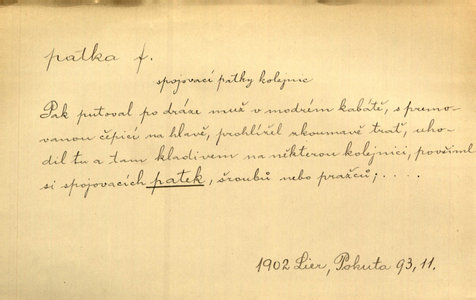 patka f.
spojovací patky kolejnic
Pak putoval po dráze muž v modrém kabátě, s premo-
vanou čepicí na hlavě, prohlížel zkoumavě trať, uho-
dil tu a tam kladivem na některou kolejnici, povšiml
si spojovacích patek, šroubů nebo pražců; . . . .
1902 Lier, Pokuta 93, 11.